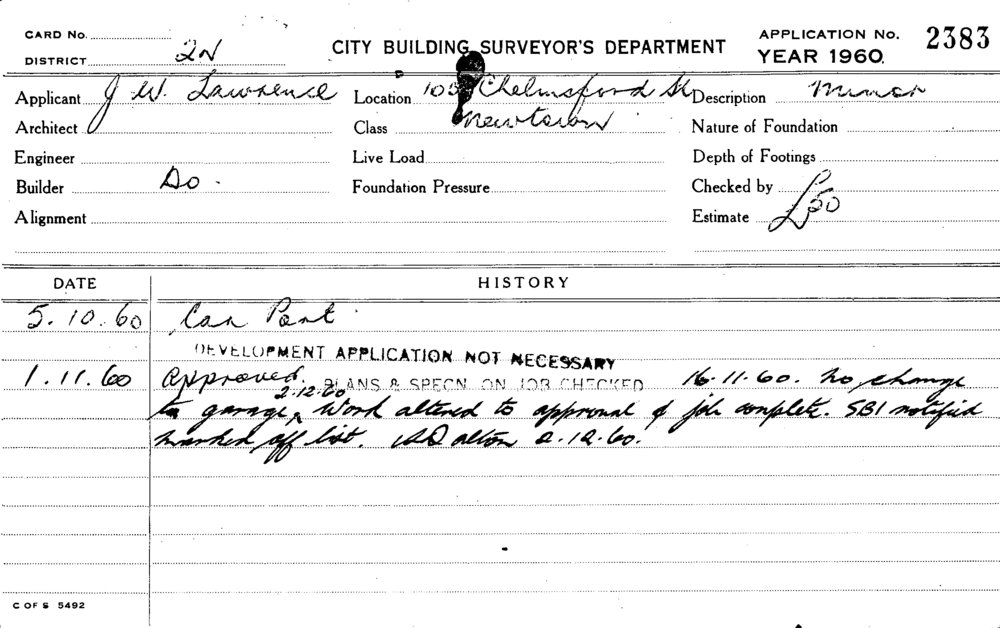 CARD No.
DISTRICT 2N
CITY BUILDING SURVEYOR'S DEPARTMENT
APPLICATION No. 2383
YEAR 1960.
Applicant J W. Lawrence
Location 100 Chelmsford St
Description Minor
Architect
Class Newtown
Nature of Foundation
Engineer
Live Load
Depth of Footings
Builder Do.
Foundation Pressure
Checked by
Alignment
Estimate £50
DATE HISTORY
5.10.60 Car Port
DEVELOPMENT APPLICATION NOT NECESSARY
1.11.60 Approved. PLANS & SPECN ON JOB CHECKED 16.11.60. No change
2.12.60
to garage, Work altered to approval & job complete. SBI notified
marked off list. 2.12.60.
C OF S 5492